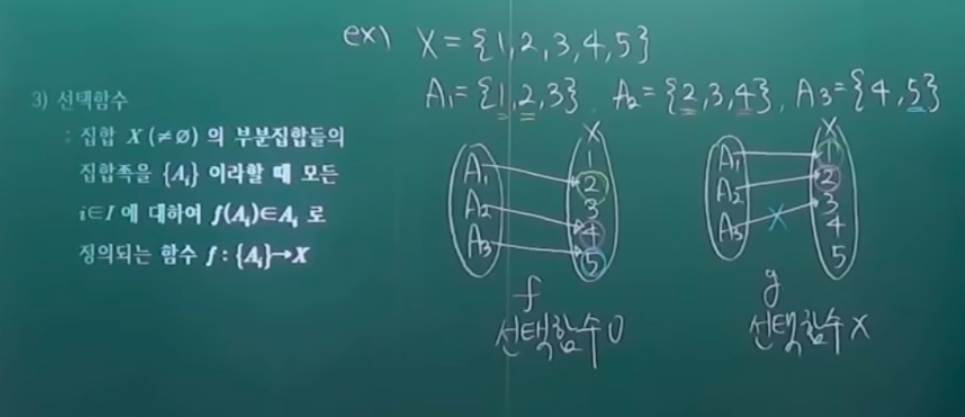 3) 선택함수
: 집합 X (≠∅) 의 부분집합들의
집합족을 {Aᵢ} 이라할 때 모든
i∈I 에 대하여 f(Aᵢ)∈Aᵢ 로
정의되는 함수 f : {Aᵢ}→X
ex) X = {1,2,3,4,5}
A₁={1,2,3}, A₂={2,3,4}, A₃={4,5}
X
A₁ 1
A₂ 2
A₃ 3
4
5
f
선택함수 O
X
A₁ 1
A₂ 2
A₃ 3
X
4
5
g
선택함수 X